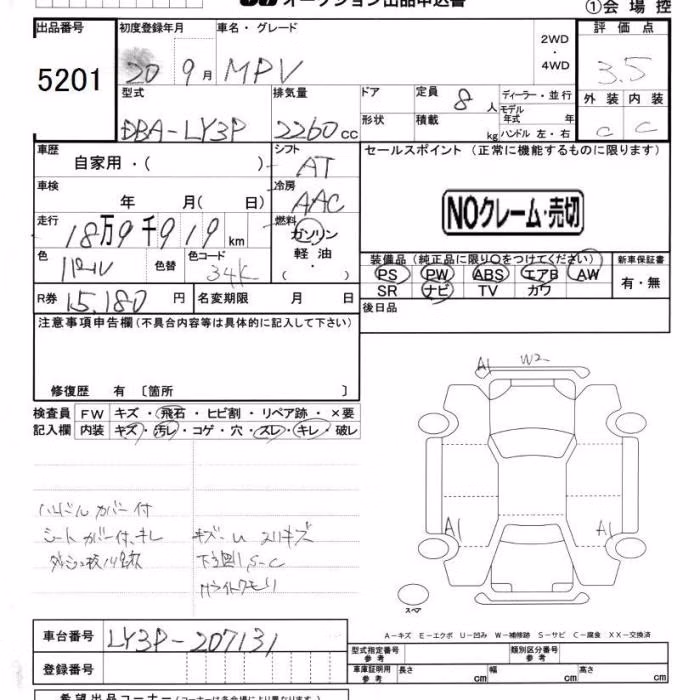 オークション出品申込書 ①会場控
出品番号 初度登録年月 車名・グレード 2WD・4WD 評価点
5201 20 9月 MPV 3.5
型式 排気量 ドア 定員 8人 ディーラー・並行 外装 内装
DBA-LY3P 2260cc 形状 積載 kg モデル年式 年 ハンドル 左・右 C C
車歴 自家用・( ) シフト AT セールスポイント (正常に機能するものに限ります)
車検 年 月( 日) 冷房 AAC NOクレーム・売切
走行 18万9千919km 燃料 ガソリン
軽油・( )
色 色替 色コード 34K 装備品 (純正品に限り○をつけてください) 新車保証書
PS PW ABS エアB AW 有・無
SR ナビ TV カワ
R券 15,180円 名変期限 月 日 後日品
注意事項申告欄 (不具合内容等は具体的に記入して下さい)
修復歴 有 〔箇所 〕
検査員 FW キズ・飛石・ヒビ割・リペア跡・×要
記入欄 内装 キズ・汚レ・コゲ・穴・スレ・キレ・破レ
A1 W2
A1 A1
ハンドル カバー付
シート カバー付、キレ キズ・U スリキズ
下廻り S-C
Hライトクモリ
スペア
A-キズ E-エクボ U-凹み W-補修跡 S-サビ C-腐食 XX-交換済
車台番号 LY3P-207131 型式指定番号 参考 類別区分番号 参考
登録番号 車庫証明用 参考 長さ cm 幅 cm 高さ cm
希望出品コーナー (コーナーは各会場により異なります)